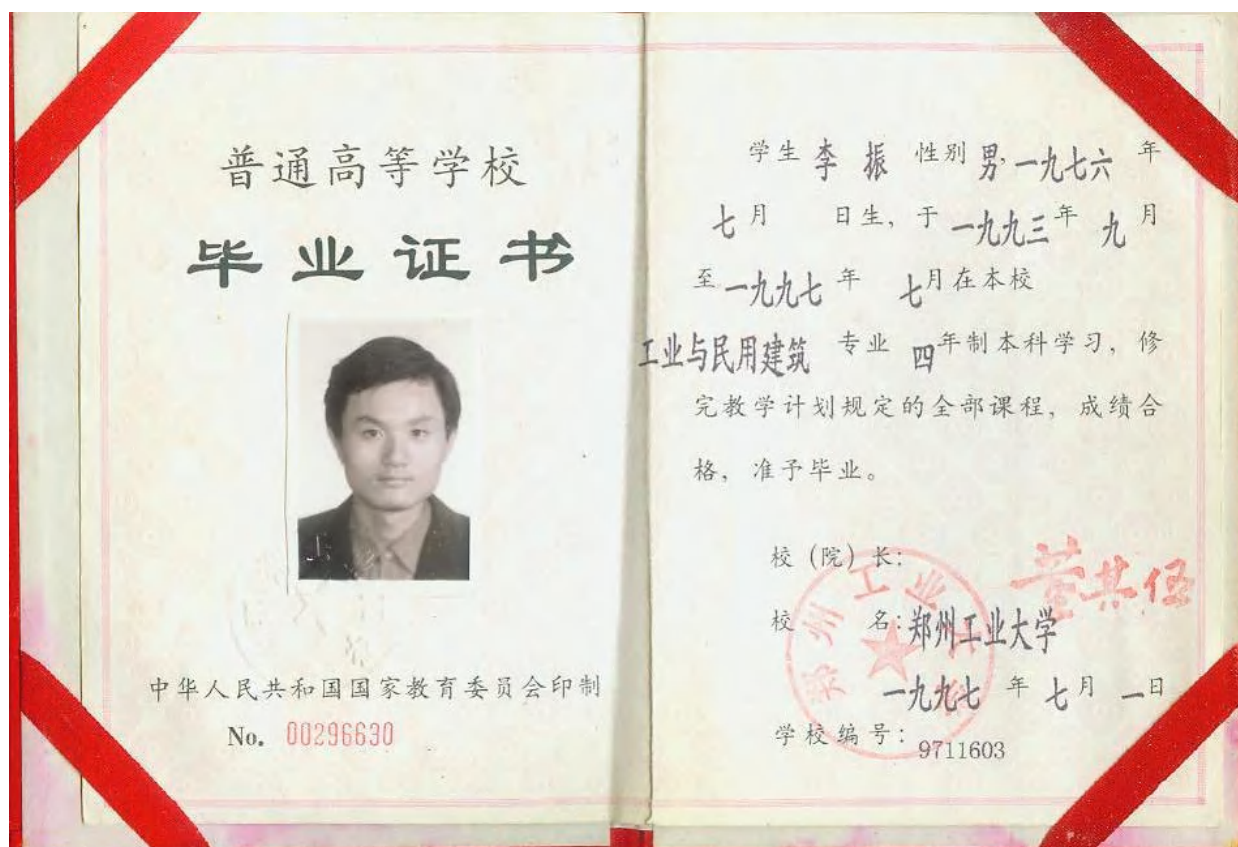 普通高等学校
毕业证书
中华人民共和国国家教育委员会印制
No. 00296630
学生 李振 性别 男, 一九七六 年
七月 日生, 于 一九九三 年 九 月
至 一九九七 年 七月在本校
工业与民用建筑 专业 四年制本科学习, 修
完教学计划规定的全部课程, 成绩合
格, 准予毕业。
校 (院) 长: 董其伍
校 名: 郑州工业大学
一九九七 年 七月 一日
学校编号: 9711603
郑州工业大学